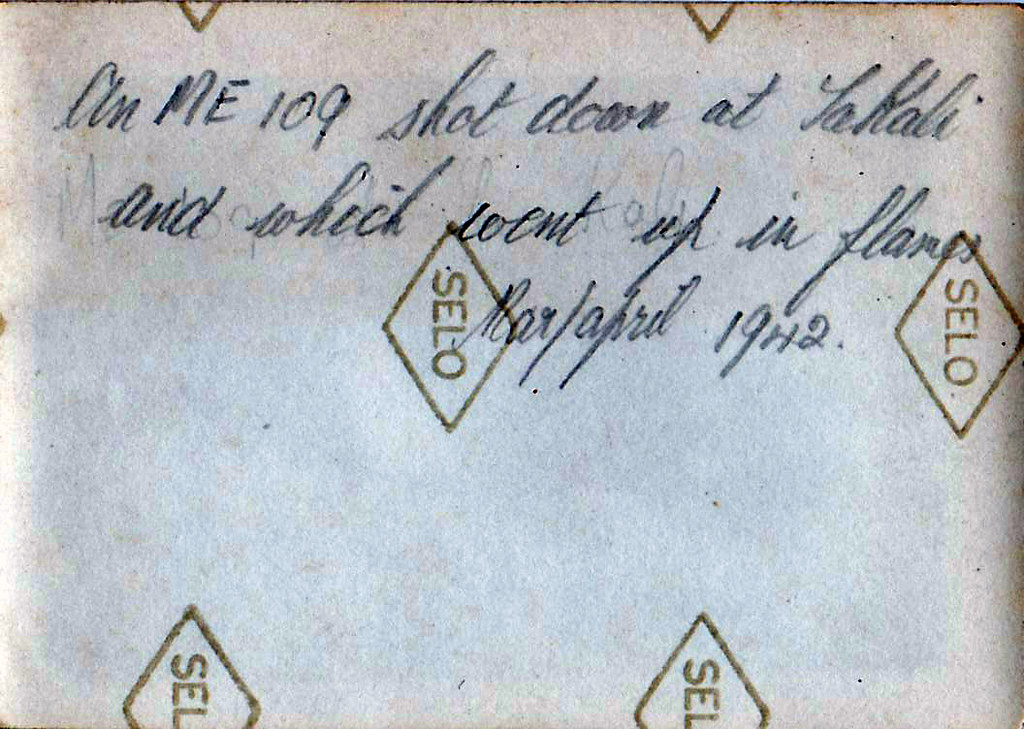 An ME 109 shot down at TaKali
and which went up in flames
Mar/april 1942.
SELO
SELO
SEL
SEL